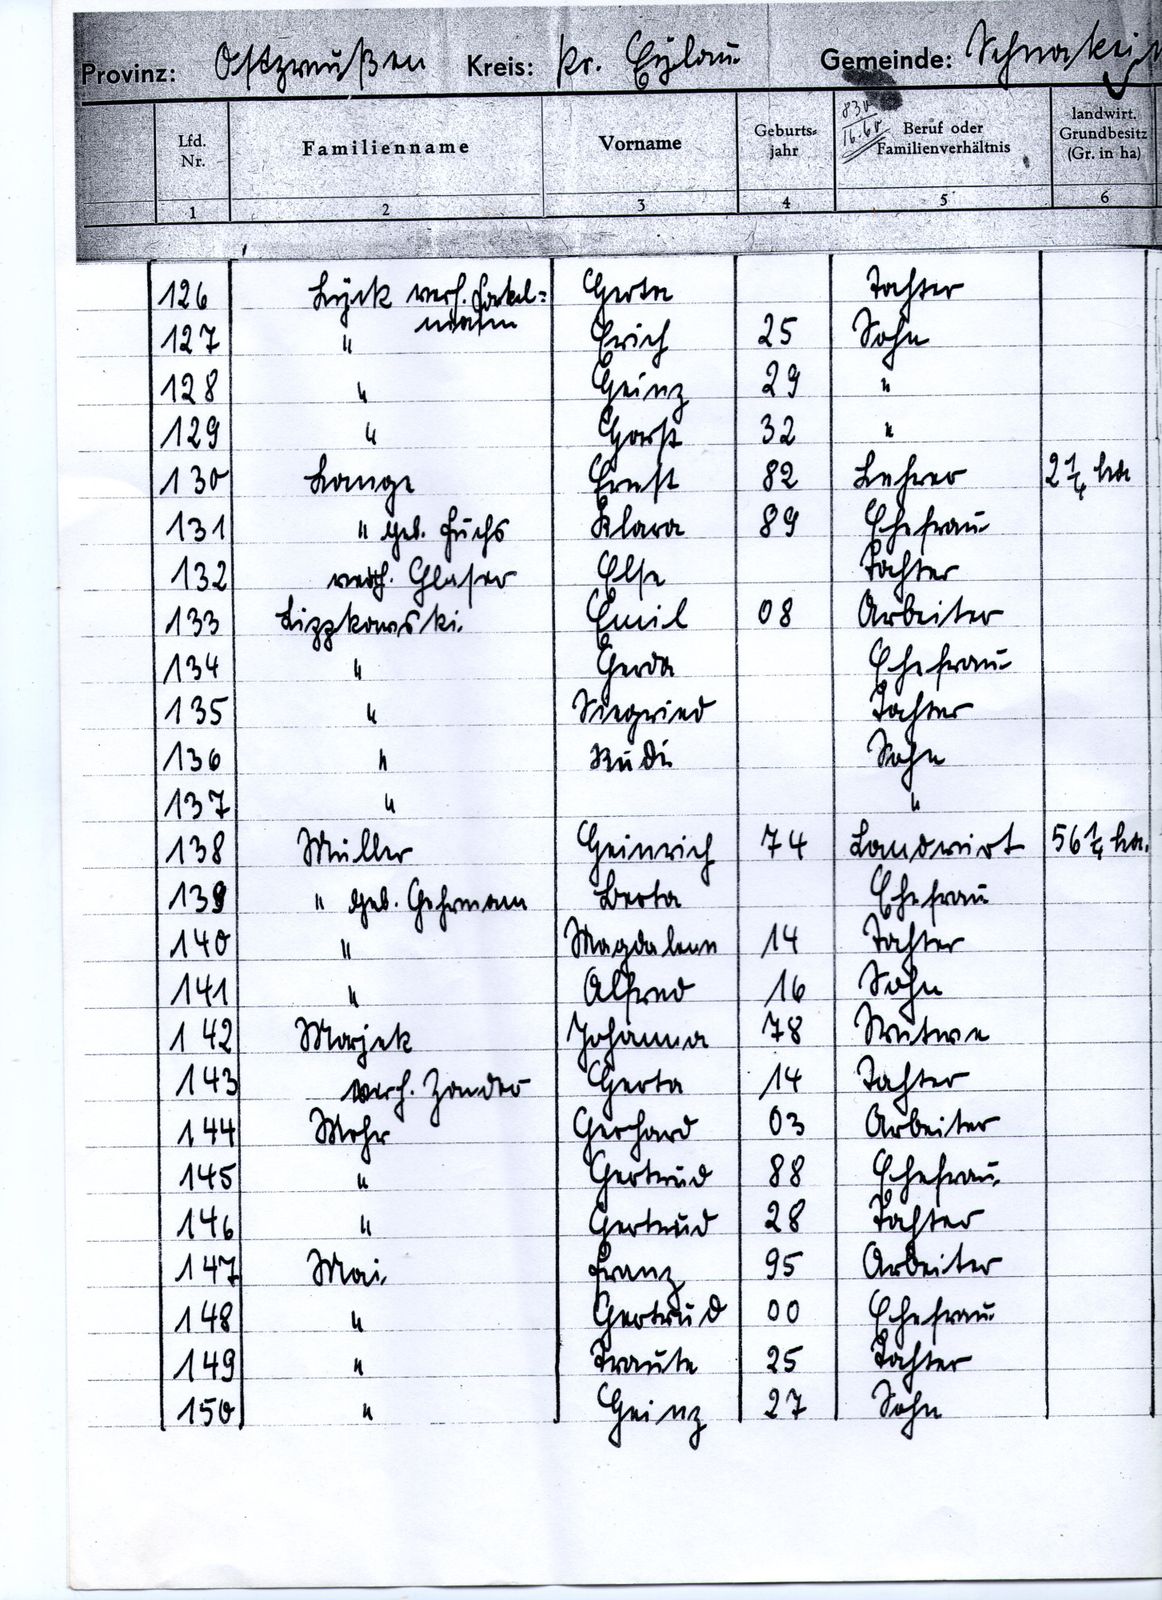 Provinz: Ostpreußen Kreis: Pr. Eylau Gemeinde: Schnakein
830
16.60
Lfd. Nr. Familienname Vorname Geburts- jahr Beruf oder Familienverhältnis landwirt. Grundbesitz (Gr. in ha)
1 2 3 4 5 6
126 Lyck verh. Gerta Tochter
127 " Erich 25 Sohn
128 " Heinz 29 "
129 " Horst 32 "
130 Lange Ernst 82 Lehrer 2 1/4 ha
131 " geb. Fuchs Klara 89 Ehefrau
132 verh. Glaser Else Tochter
133 Lippkowski Emil 08 Arbeiter
134 " Gerda Ehefrau
135 " Siegried Tochter
136 " Rudi Sohn
137 " "
138 Müller Heinrich 74 Landwirt 56 1/4 ha.
139 " geb. Gehrmann Berta Ehefrau
140 " Magdalene 14 Tochter
141 " Alfred 16 Sohn
142 Marjek Johanna 78 Witwe
143 verh. Zander Gerta 14 Tochter
144 Mohr Gerhard 03 Arbeiter
145 " Gertrud 88 Ehefrau
146 " Gertrud 28 Tochter
147 Mai Franz 95 Arbeiter
148 " Gertrud 00 Ehefrau
149 " Traute 25 Tochter
150 " Heinz 27 Sohn